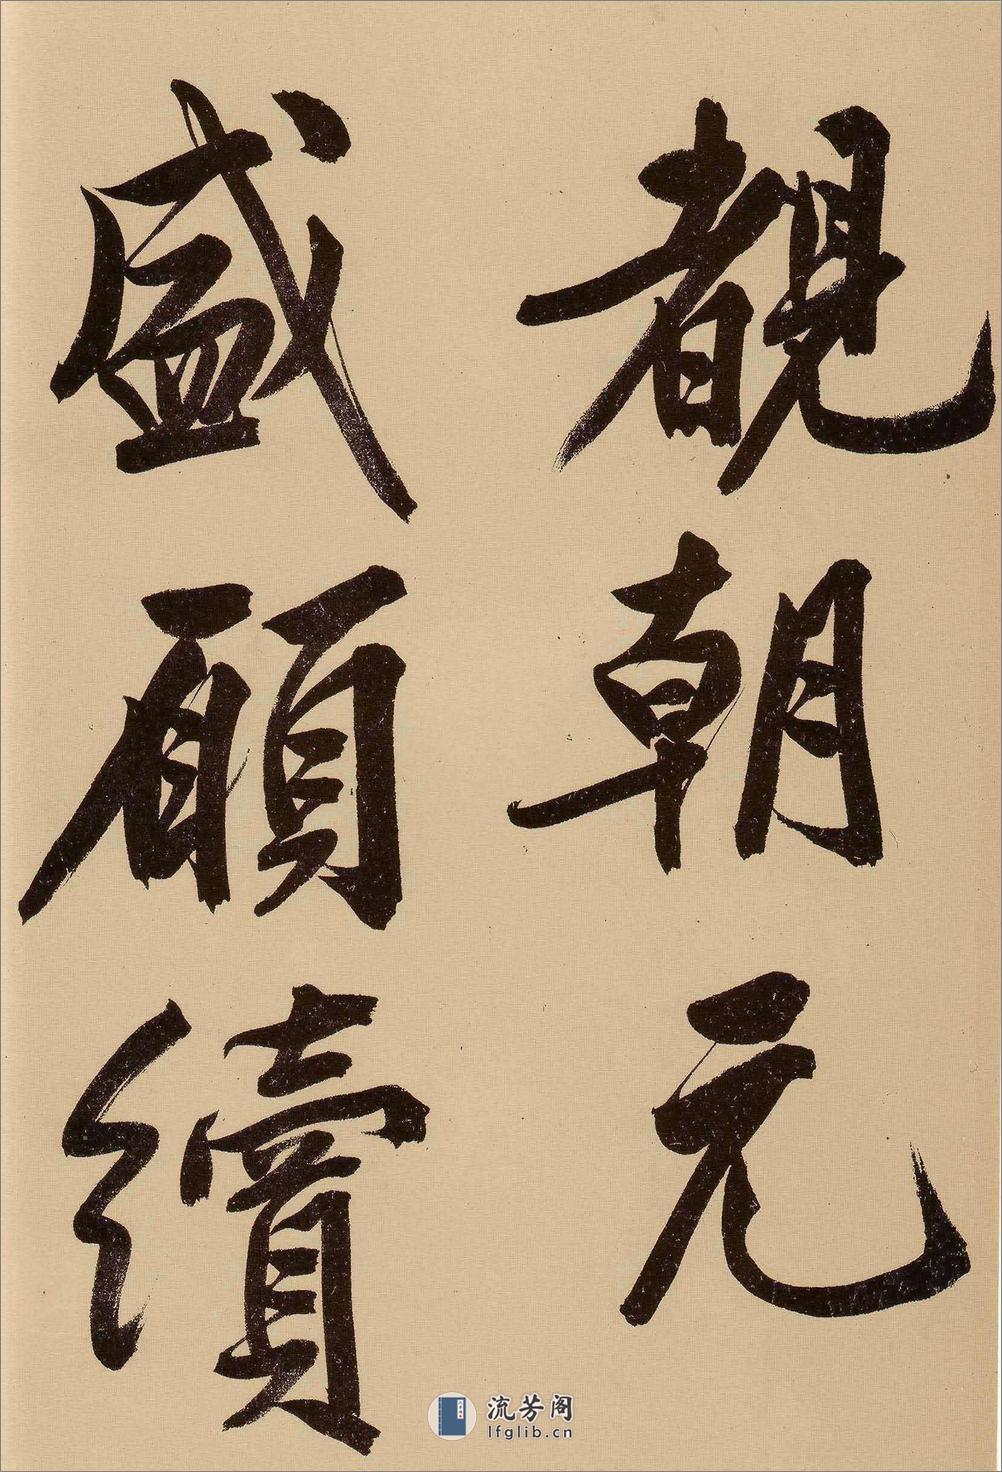 覩朝元
盛願續
流芳阁
lfglib.cn